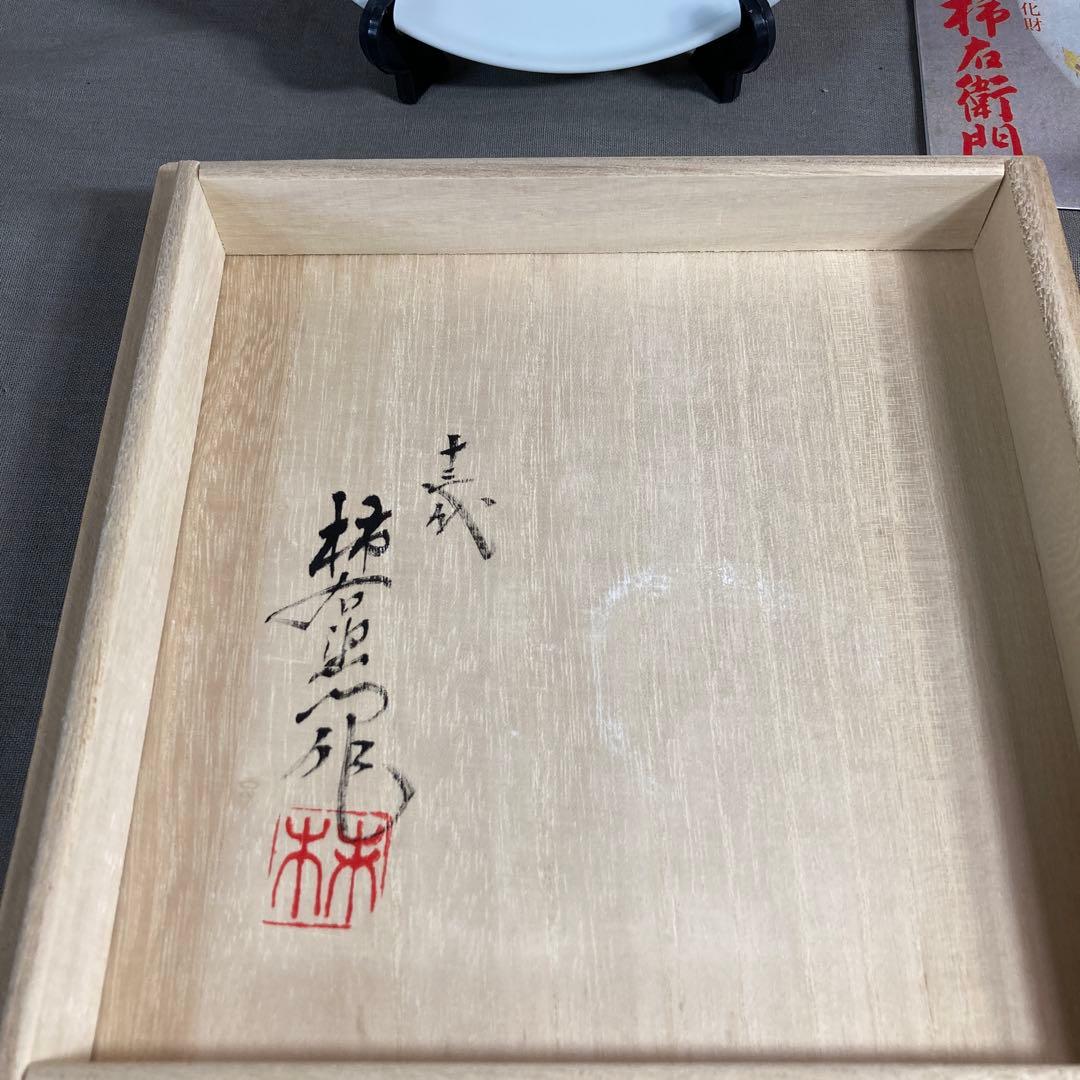 十三代
柿右衛門作
柿右衛門
化財